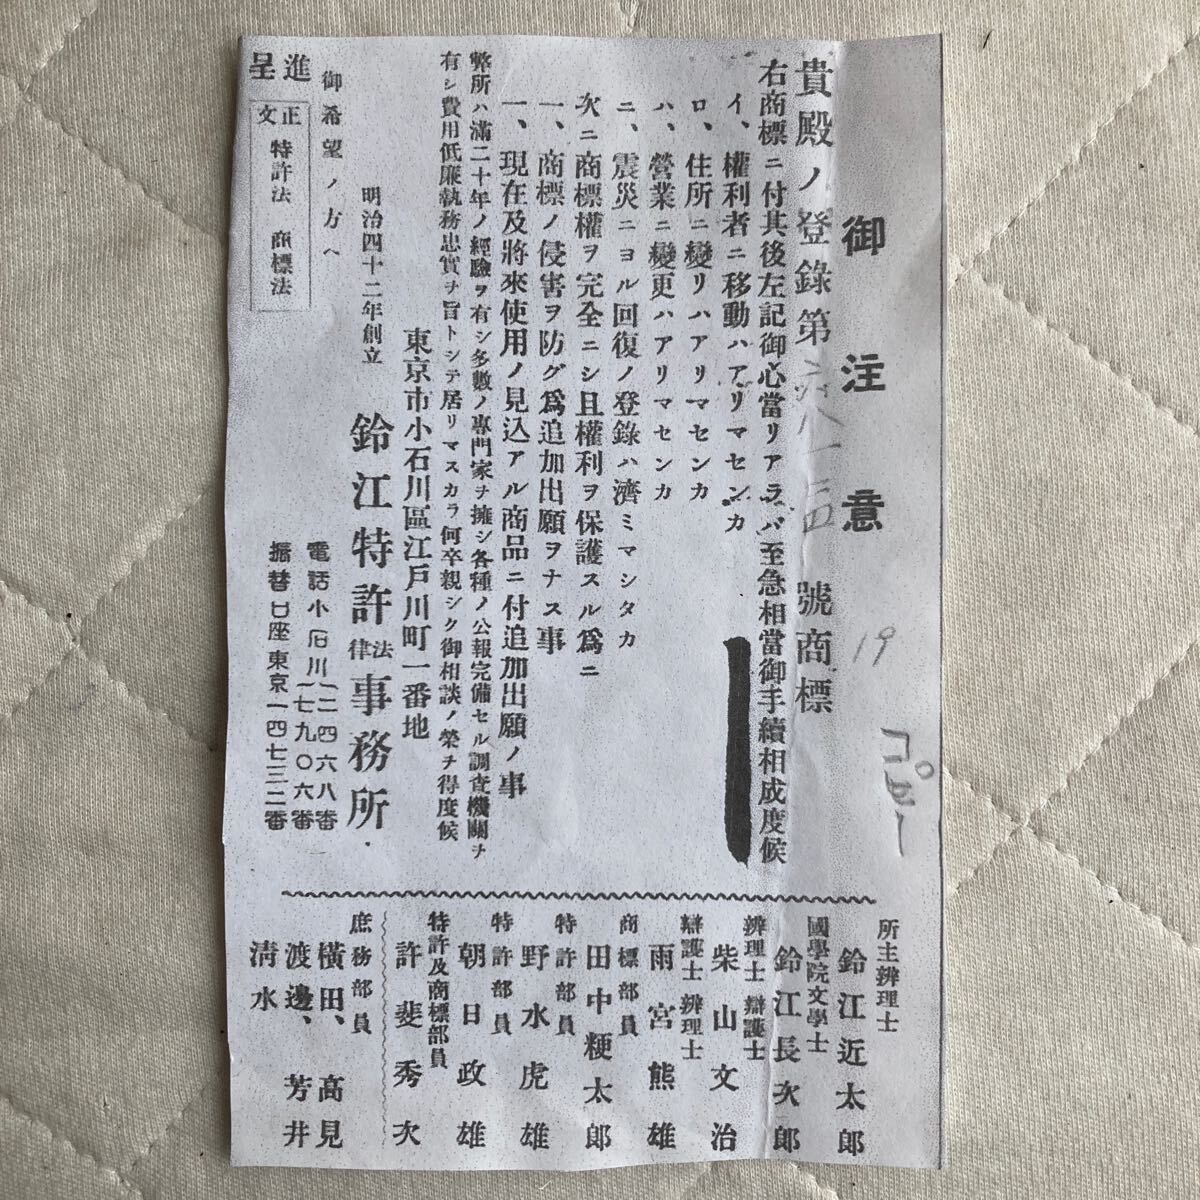 御注意
貴殿ノ登錄第六八一三四號商標
右商標ニ付其後左記御心當リアラバ至急相當御手續相成度候
イ、權利者ニ移動ハアリマセンカ
ロ、住所ニ變リハアリマセンカ
ハ、營業ニ變更ハアリマセンカ
ニ、震災ニヨル回復ノ登錄ハ濟ミマシタカ
次ニ商標權ヲ完全ニシ且權利ヲ保護スル爲ニ
一、商標ノ侵害ヲ防グ爲追加出願ヲナス事
一、現在及將來使用ノ見込アル商品ニ付追加出願ノ事
弊所ハ滿二十年ノ經驗ヲ有シ多數ノ專門家ヲ擁シ各種ノ公報完備セル調査機關ヲ
有シ費用低廉執務忠實ヲ旨トシテ居リマスカラ何卒親シク御相談ノ榮ヲ得度候
東京市小石川區江戸川町一番地
明治四十二年創立
鈴江特許法律事務所
電話小石川一二四六八番
一七九〇六番
振替口座東京一四七三二番
御希望ノ方ヘ
進呈
正文
特許法 商標法
19
コピー
所主辨理士
鈴江近太郎
國學院文學士
鈴江長次郎
辨理士 辯護士
柴山文治
辯護士 辨理士
雨宮熊雄
商標部員
田中粳太郎
特許部員
野水虎雄
特許部員
朝日政雄
特許及商標部員
許斐秀次
庶務部員
橫田、高見
渡邊、芳井
淸水